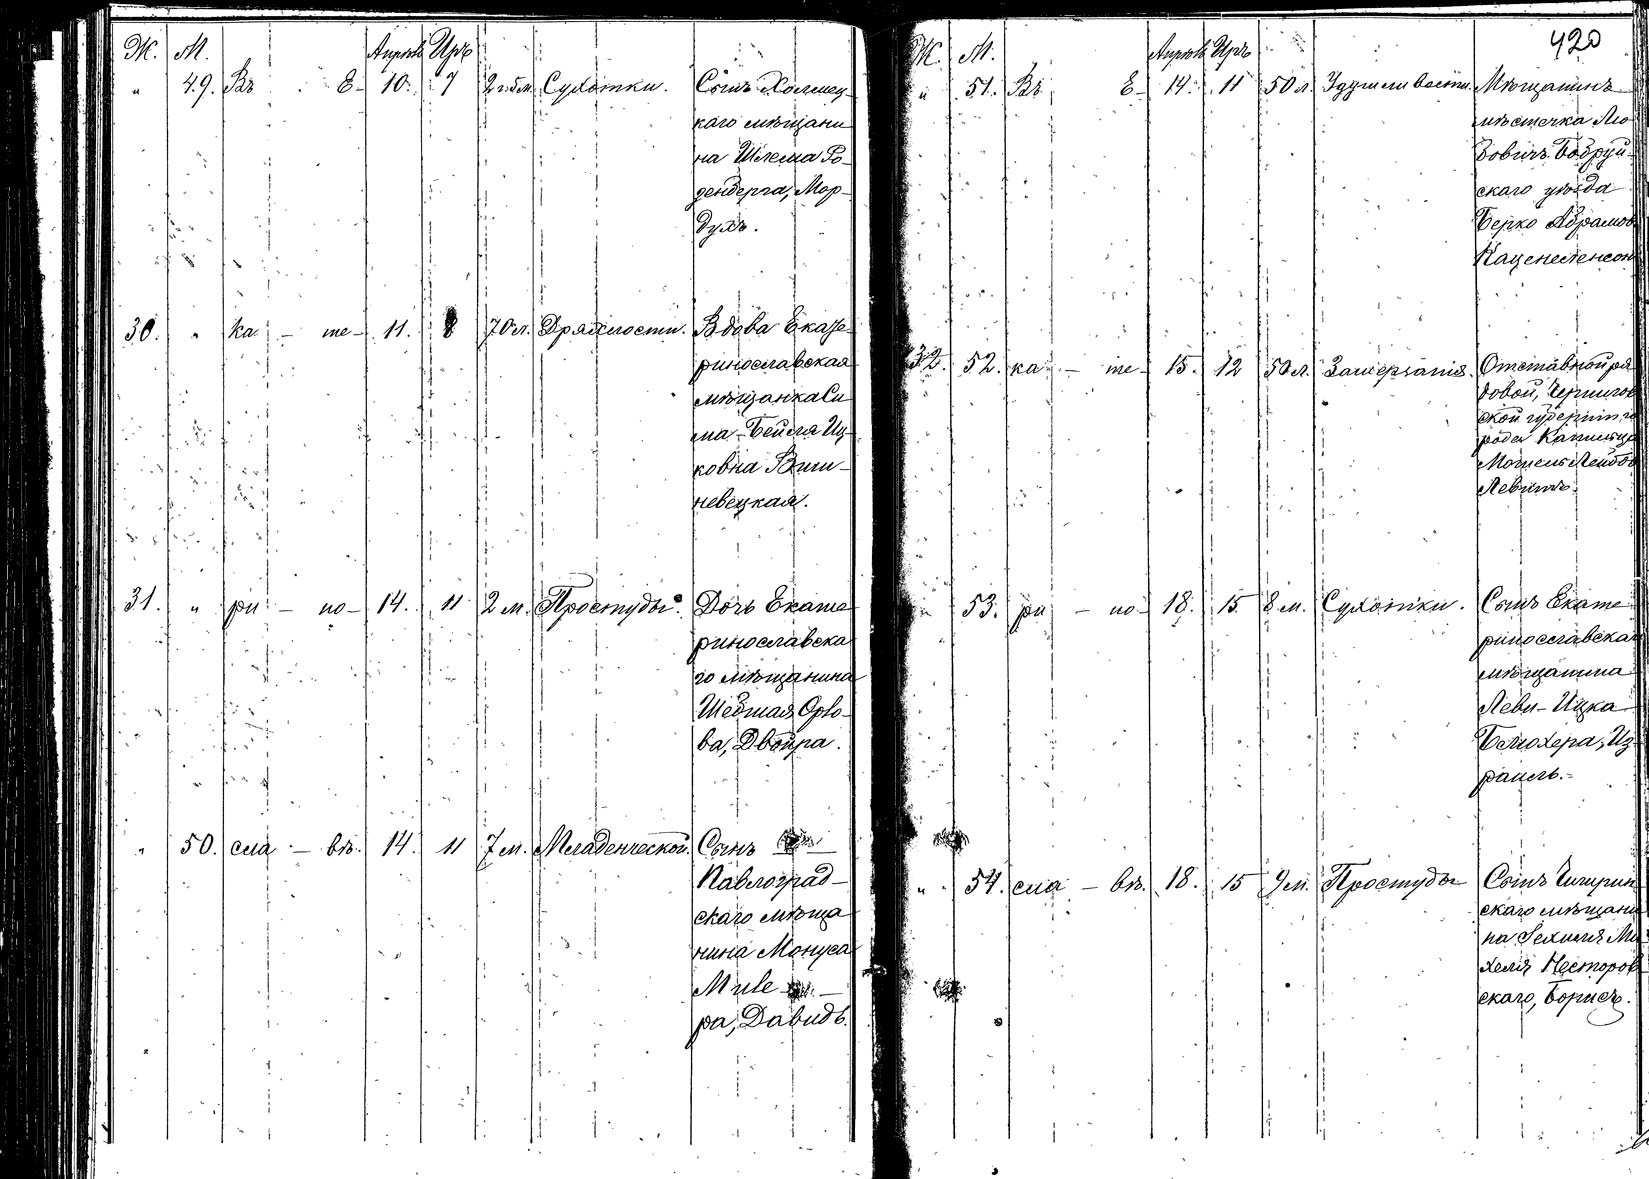 Ж. М. Апрель Iръ
" 49. Въ Е- 10. 7 2 г. 5 м. Сухотки. Сынъ Холмец-
каго мѣщани-
на Шлема Ро-
денберга, Мор-
духъ.
30. " ка - те- 11. 8 70 л. Дряхлости. Вдова Екате-
ринославская
мѣщанка Си-
ма-Бейля Иц-
ковна Виш-
невецкая.
31. " ри - но- 14. 11 2 м. Простуды. Дочь Екате-
ринославска-
го мѣщанина
Орло-
ва, Двойра.
" 50. сла - вѣ. 14. 11 7 м. Младенческой. Сынъ
Павлоград-
скаго мѣща-
нина Мануса
ра, Давидъ.
420
Ж. М. Апрель Iръ
" 51. Въ Е- 14. 11 50 л. Удушливости. Мѣщанинъ
мѣстечка Лю-
бовичъ Бобруй-
скаго уѣзда
Берко Абрамовъ
Каценеленсон
32. 52. ка - те- 15. 12 50 л. Отставной ря-
довой, Чернигов-
ской губерніи го-
рода
Мошель Лейбовъ
Левинъ.
" 53. ри - но- 18. 15 8 м. Сухотки. Сынъ Екате-
ринославскаго
мѣщанина
Леви-Ицка
Израиль.
" 54. сла - вѣ. 18. 15 9 м. Простуды Сынъ Чигирин-
скаго мѣщани-
на Ми-
хеля Несторов-
скаго, Борисъ.